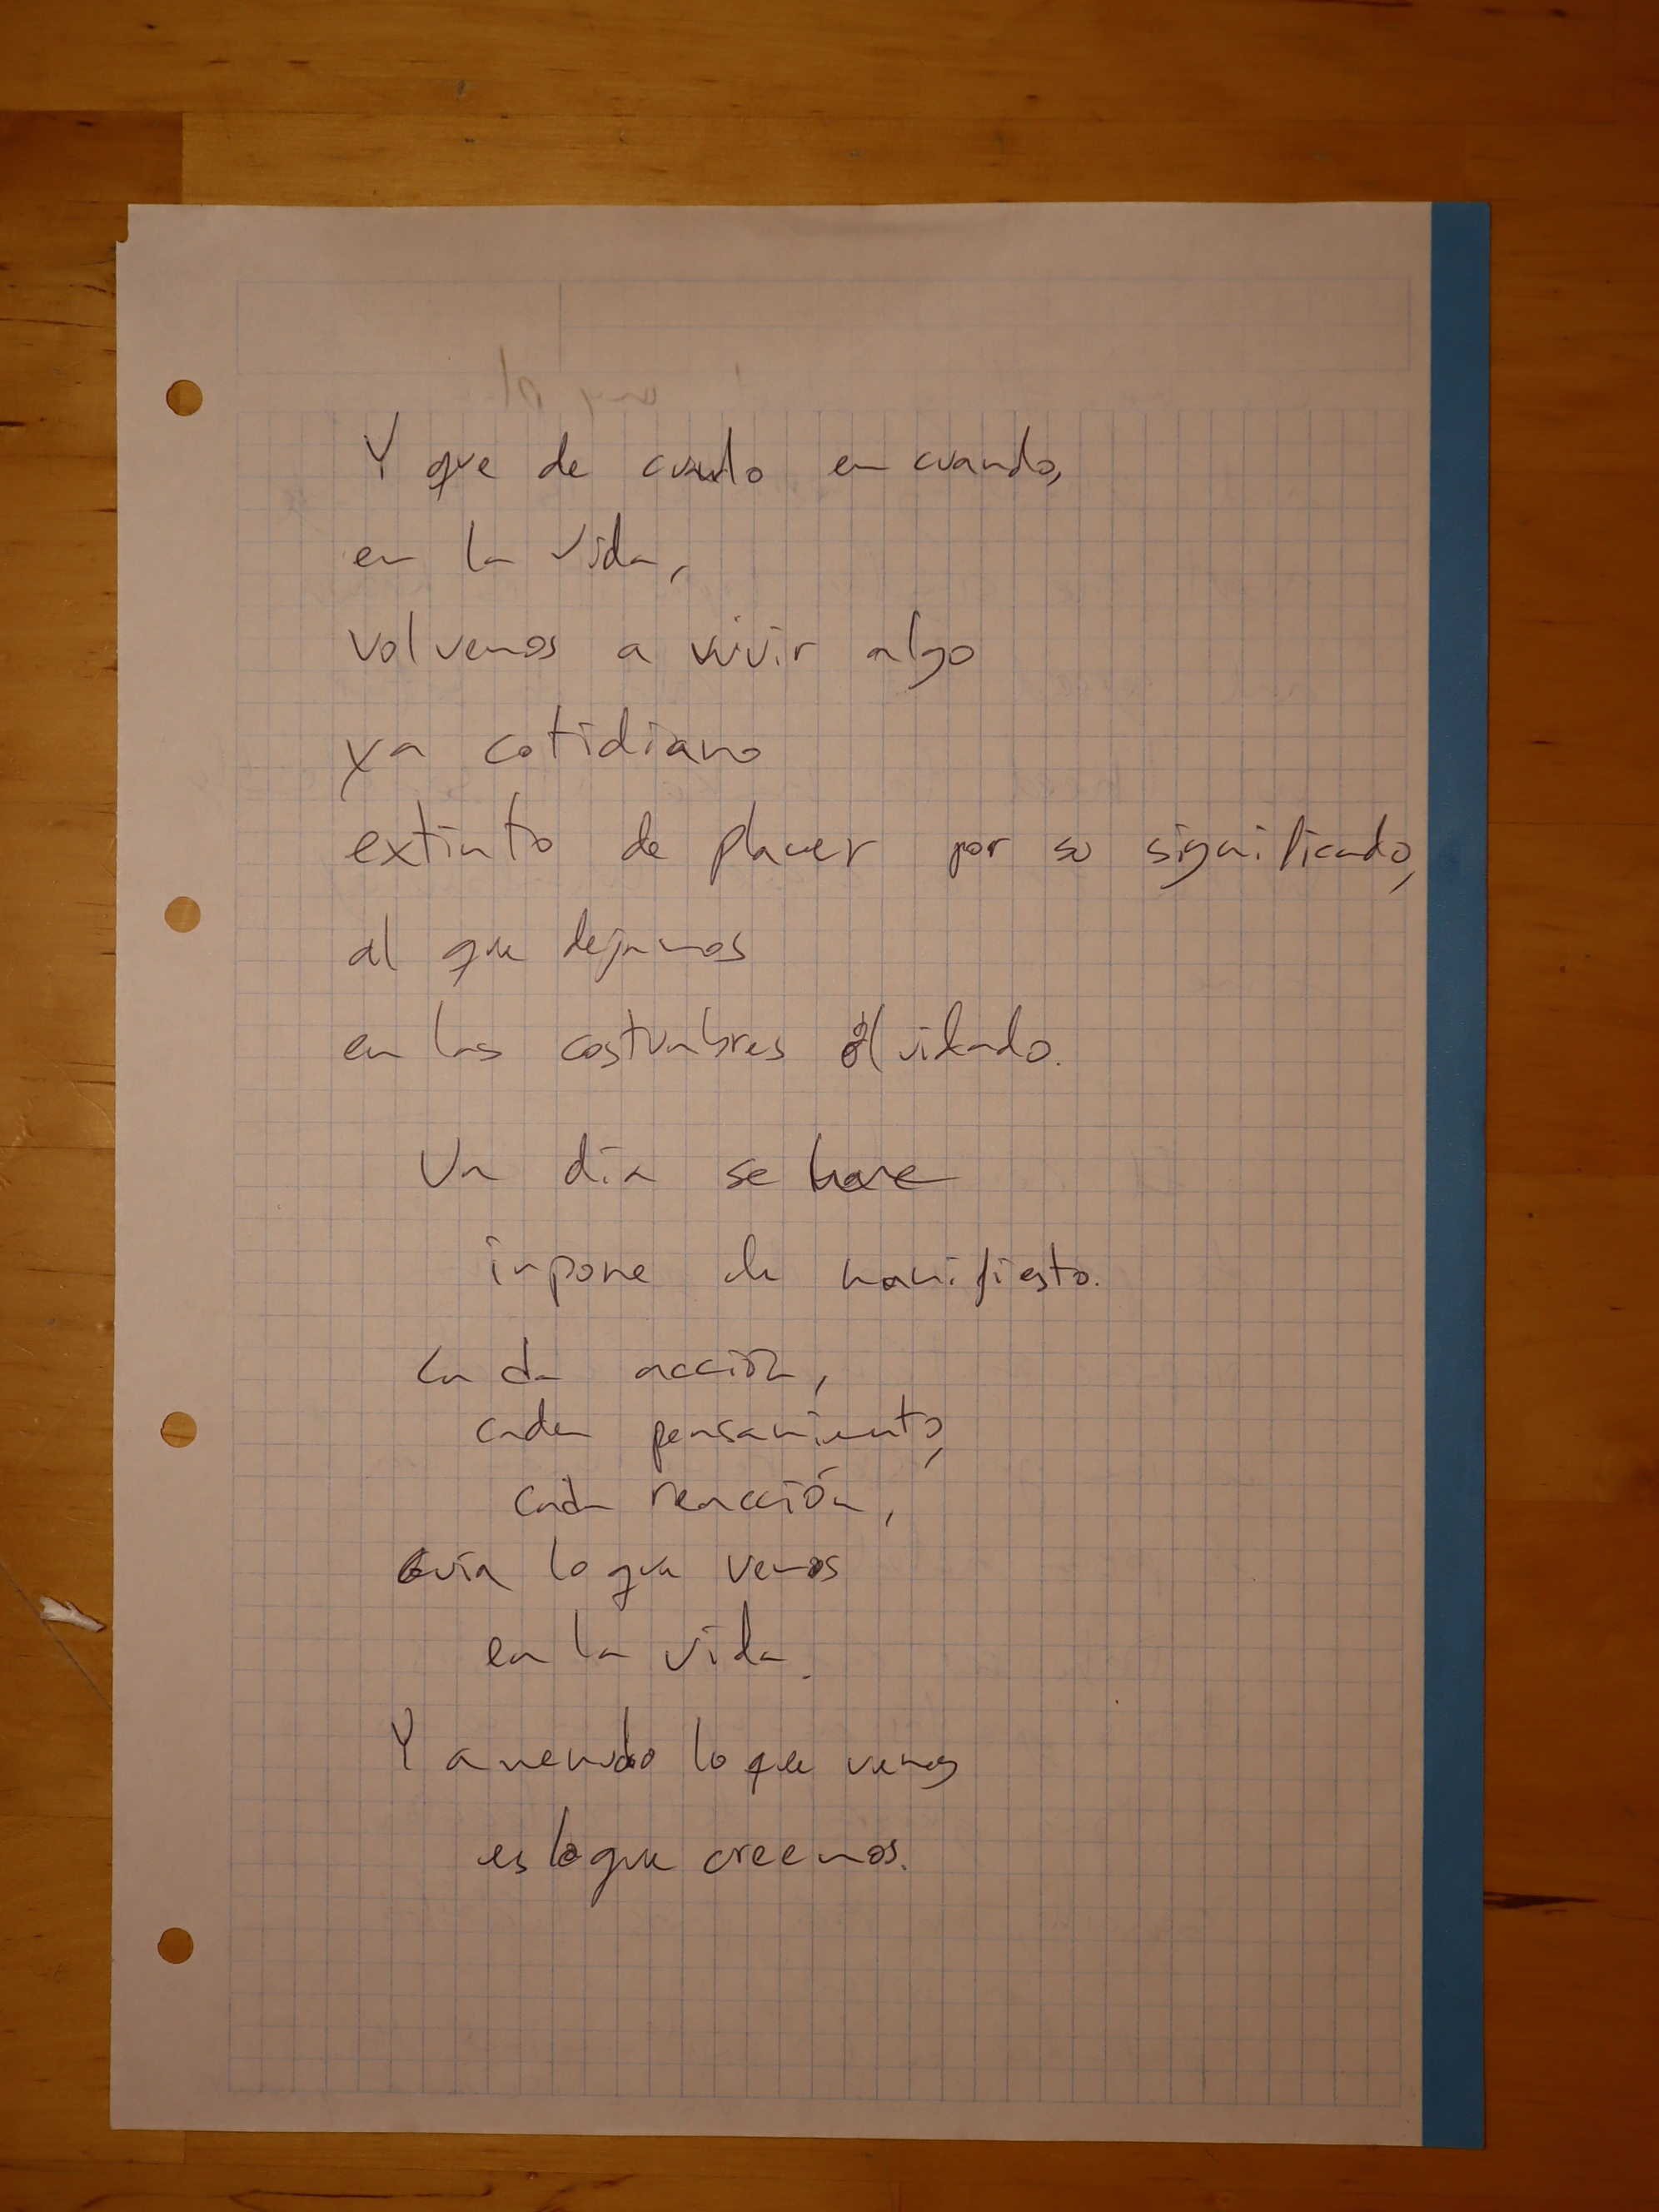 Y que de cuando en cuando,
en la vida,
volvemos a vivir algo
ya cotidiano
extinto de placer por su significado,
al que dejamos
en las costumbres olvidado.
Un día se
impone de manifiesto.
Cada acción,
cada pensamiento,
cada reacción,
Guía lo que vemos
en la vida.
Y a menudo lo que vemos
es lo que creemos.